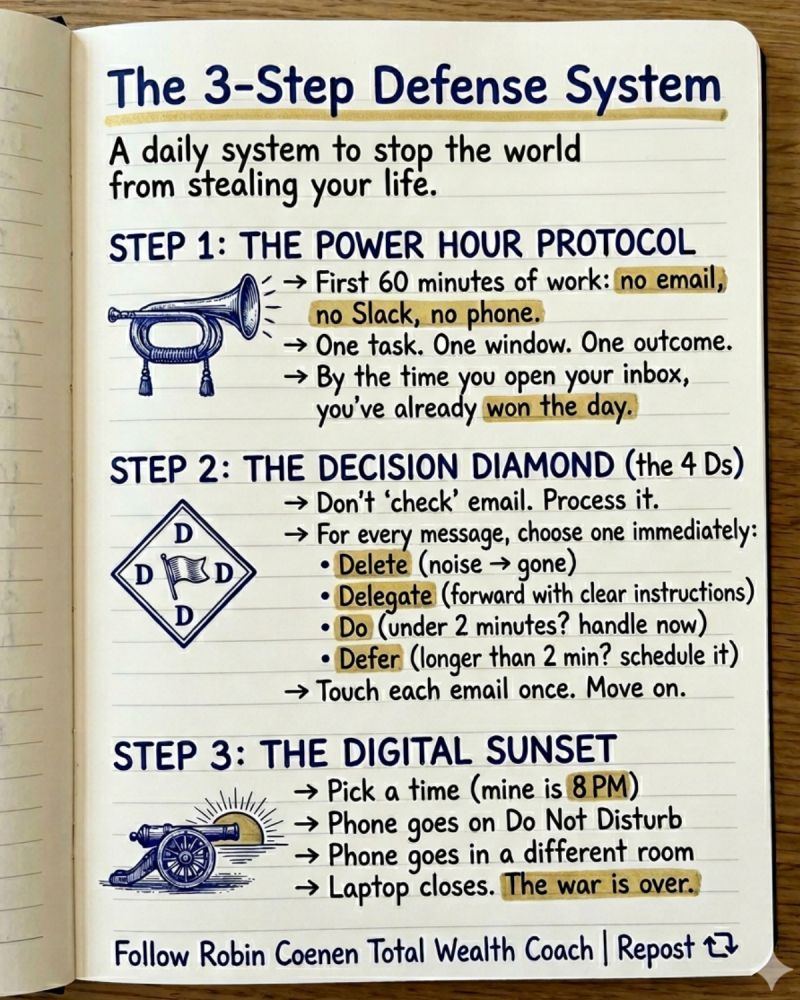 The 3-Step Defense System
A daily system to stop the world
from stealing your life.
STEP 1: THE POWER HOUR PROTOCOL
→ First 60 minutes of work: no email,
no Slack, no phone.
→ One task. One window. One outcome.
→ By the time you open your inbox,
you've already won the day.
STEP 2: THE DECISION DIAMOND (the 4 Ds)
D
D D
D
→ Don't 'check' email. Process it.
→ For every message, choose one immediately:
• Delete (noise → gone)
• Delegate (forward with clear instructions)
• Do (under 2 minutes? handle now)
• Defer (longer than 2 min? schedule it)
→ Touch each email once. Move on.
STEP 3: THE DIGITAL SUNSET
→ Pick a time (mine is 8 PM)
→ Phone goes on Do Not Disturb
→ Phone goes in a different room
→ Laptop closes. The war is over.
Follow Robin Coenen Total Wealth Coach | Repost